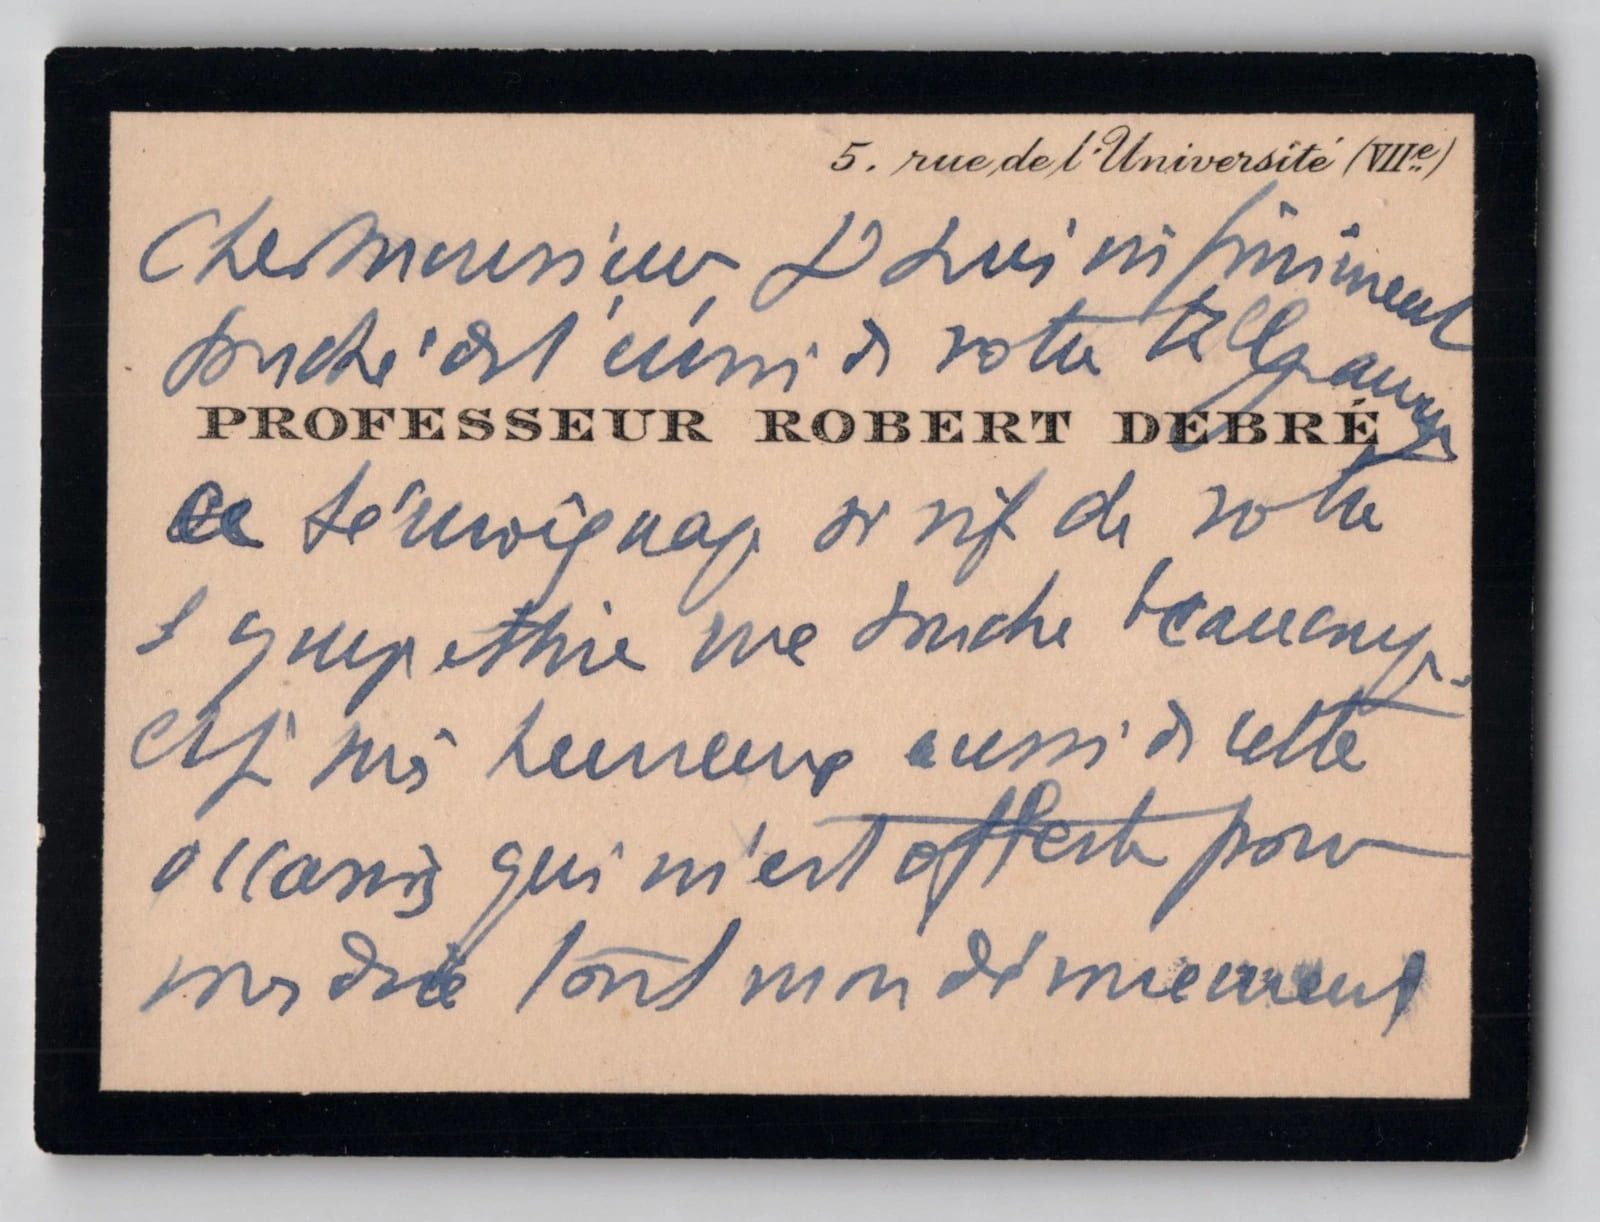 5. rue de l'Université (VIIe)
Cher Monsieur Je suis infiniment
touché de l'envoi de votre télégramme
PROFESSEUR ROBERT DEBRÉ
ce témoignage si vif de votre
sympathie me touche beaucoup.
et je suis heureux aussi de cette
occasion qui m'est offerte pour
vous dire tout mon dévouement